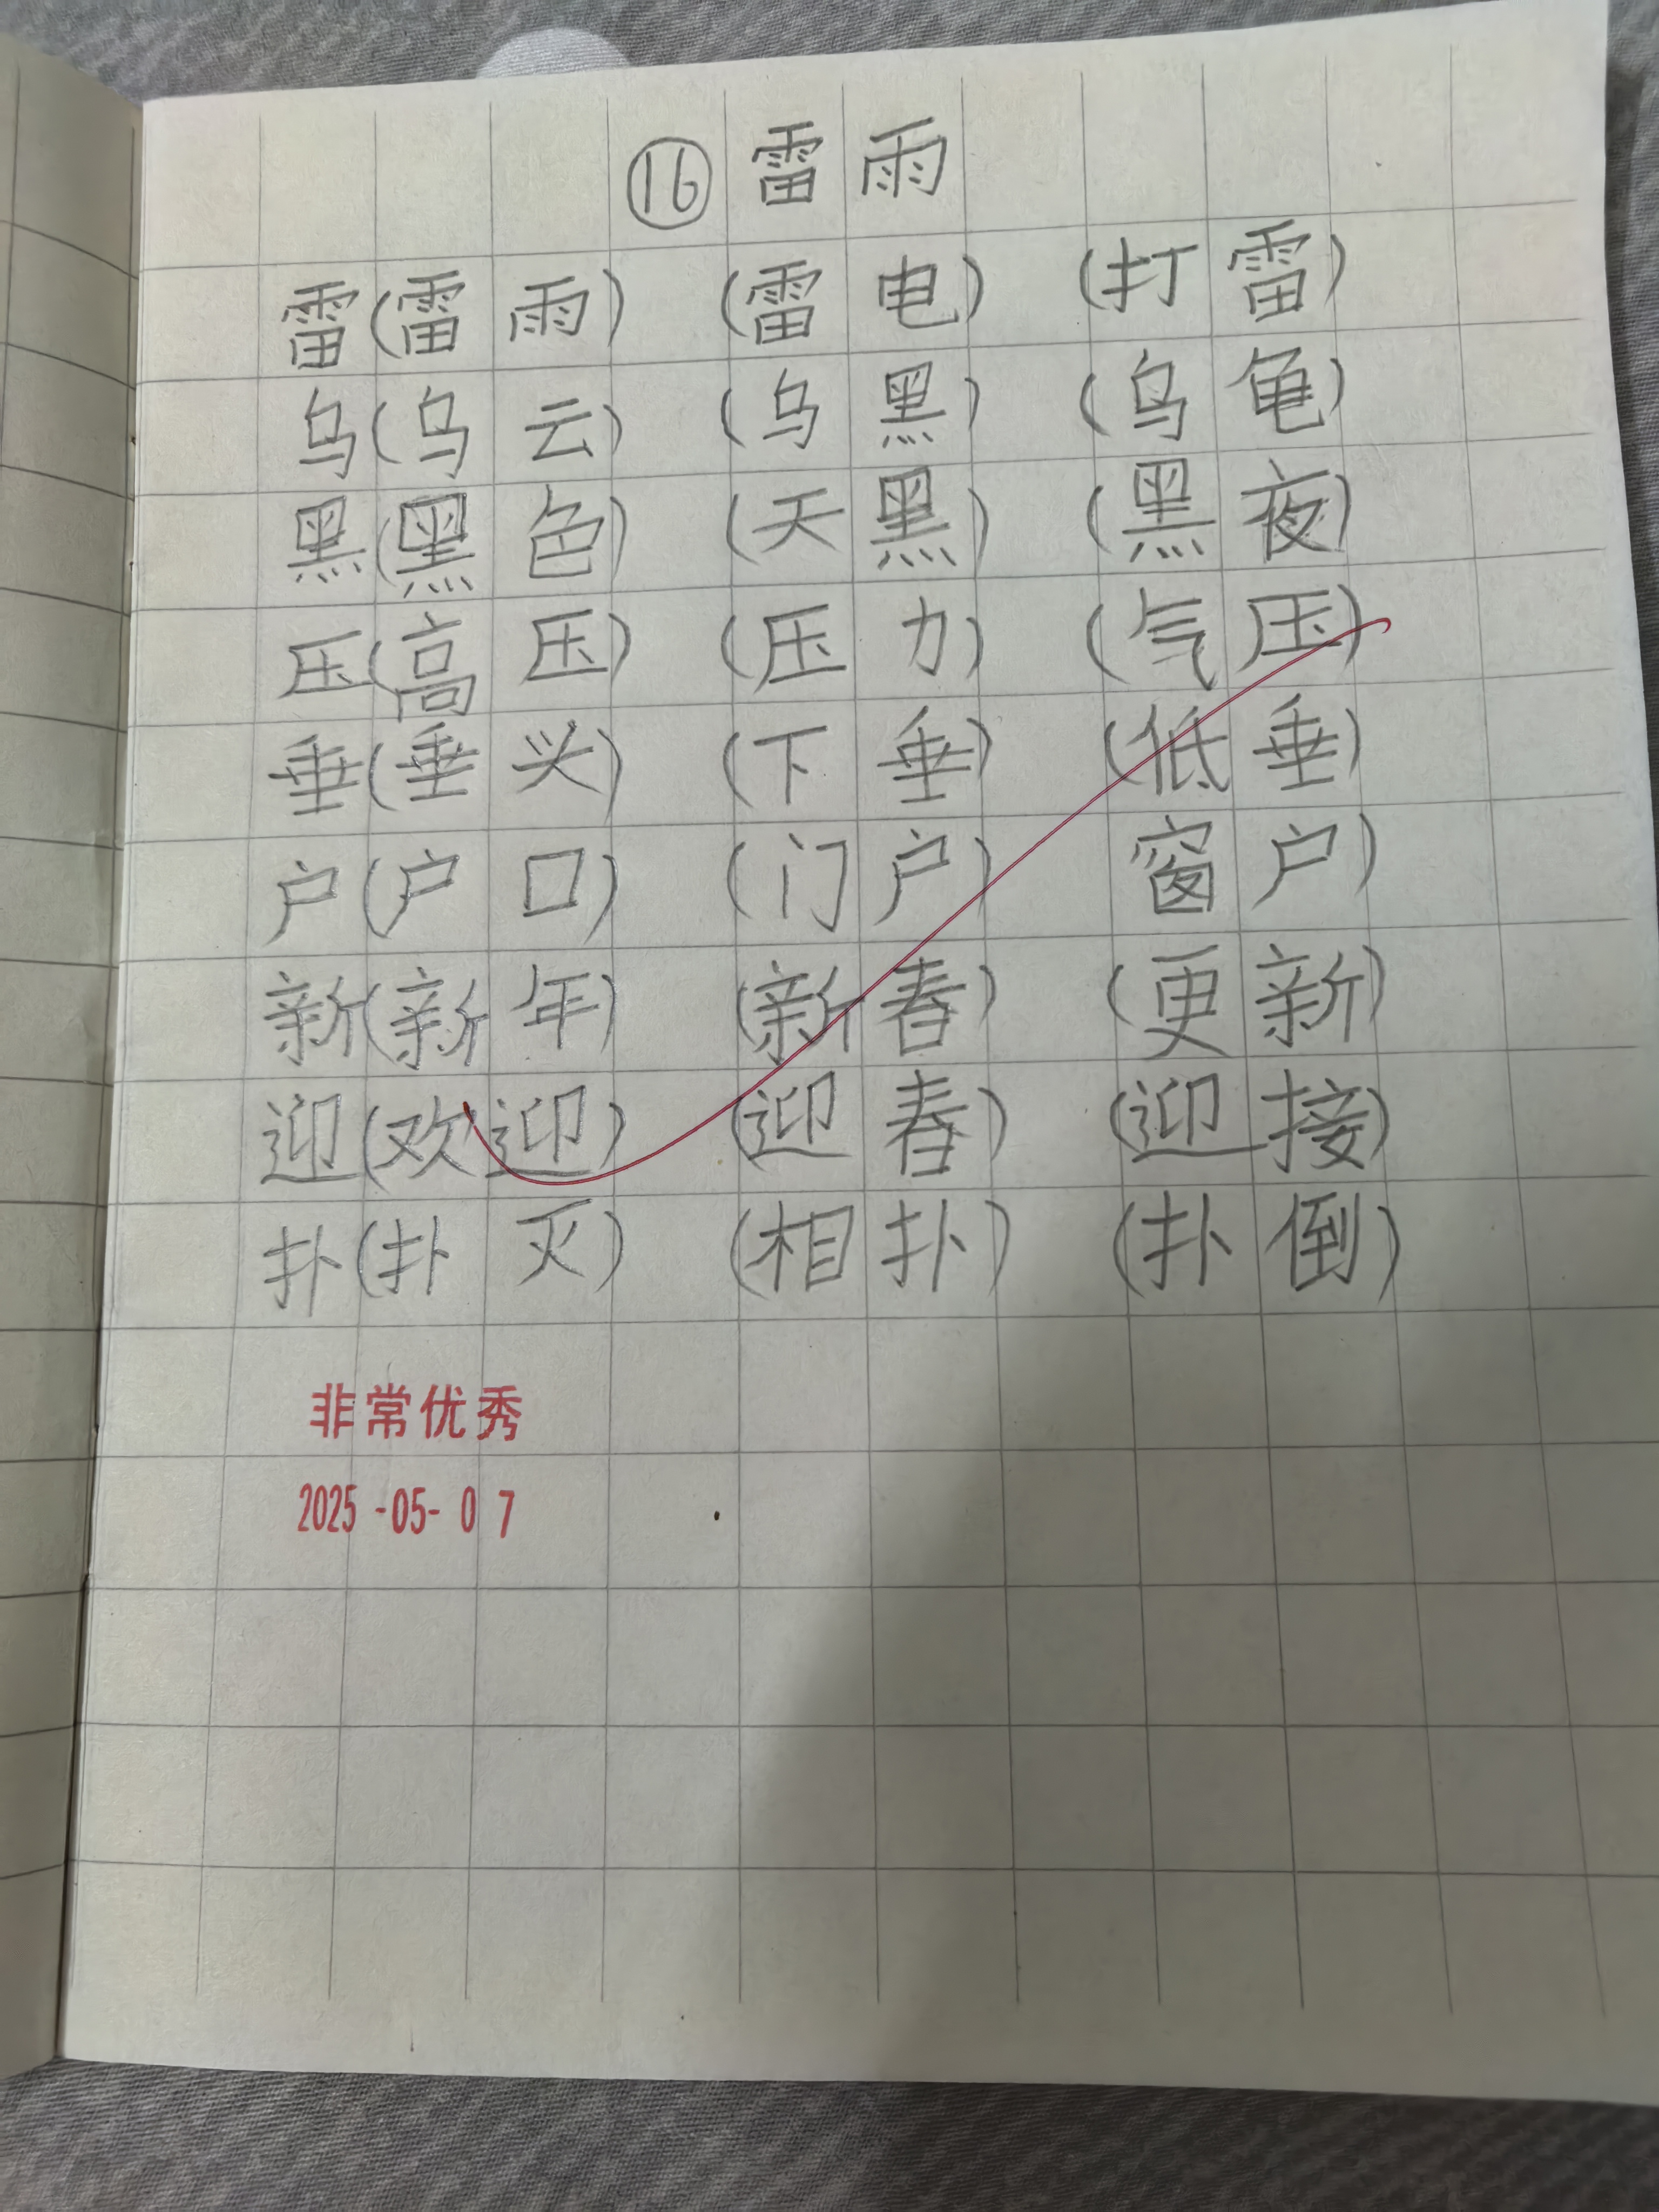 ⑯ 雷雨
雷(雷雨) (雷电) (打雷)
乌(乌云) (乌黑) (乌龟)
黑(黑色) (天黑) (黑夜)
压(高压) (压力) (气压)
垂(垂头) (下垂) (低垂)
户(户口) (门户) 窗户)
新(新年) (新春) (更新)
迎(欢迎) (迎春) (迎接)
扑(扑灭) (相扑) (扑倒)
非常优秀
2025-05-07